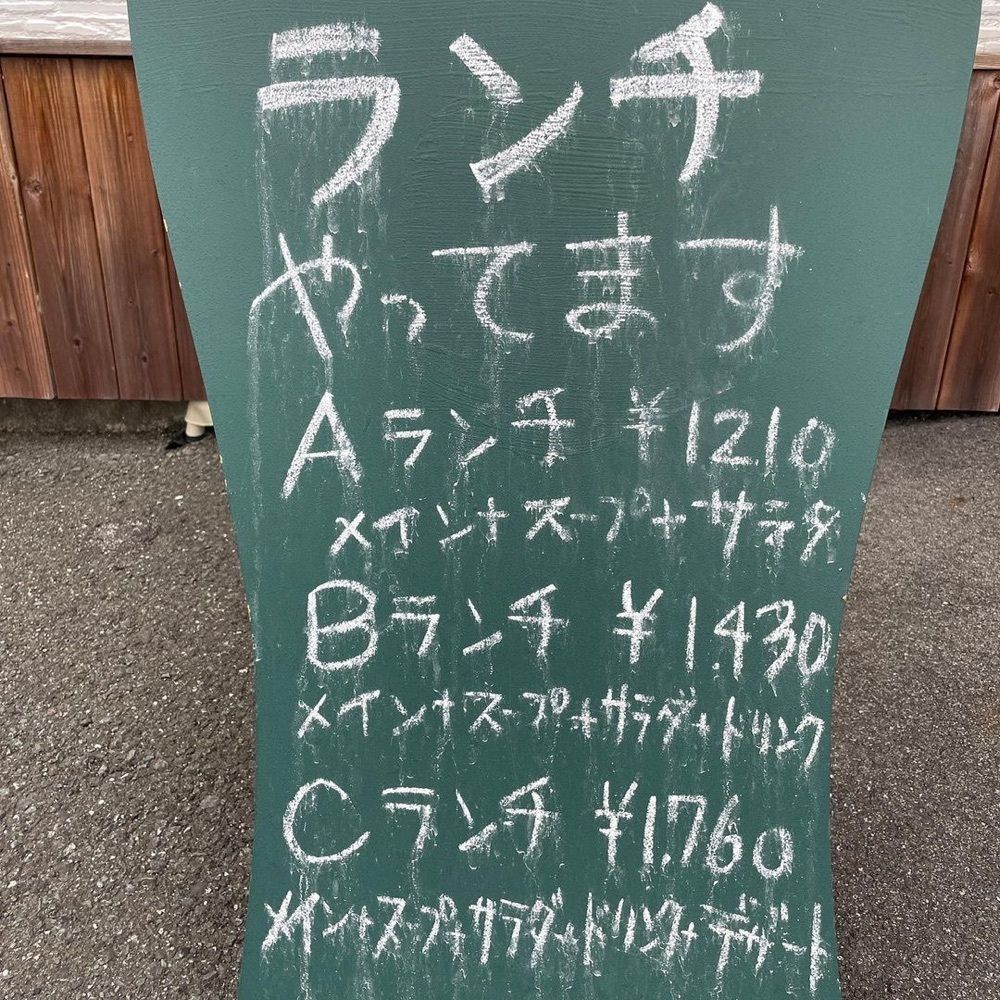 ランチ
やってます
Aランチ ¥1210
メイン+スープ+サラダ
Bランチ ¥1.430
メイン+スープ+サラダ+ドリンク
Cランチ ¥1.760
メイン+スープ+サラダ+ドリンク+デザート